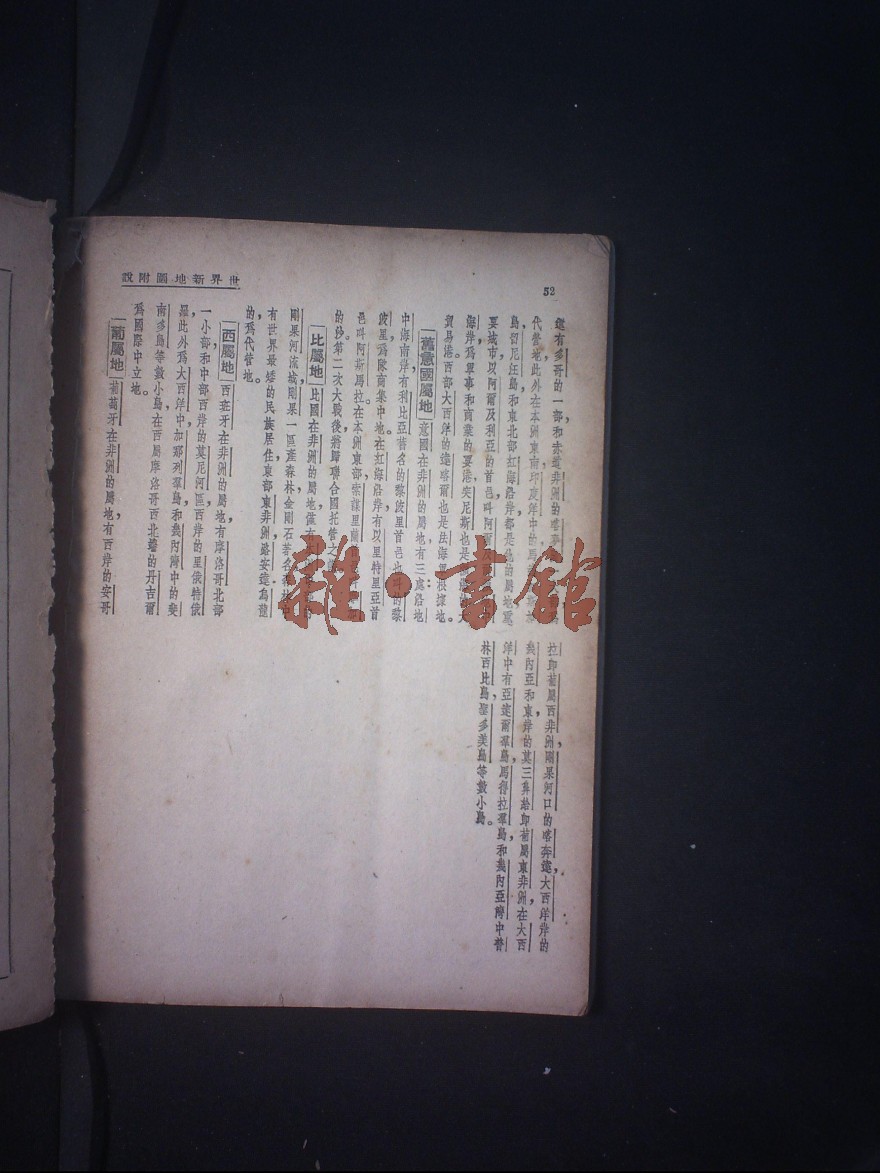 世界新地圖附說
52
還有多哥的一部和赤道非洲的喀麥
代管地此外在本洲東南印度洋中的馬
島留尼汪島和東北部紅海沿岸都是他的屬地重
要城市以阿爾及利亞的首邑叫阿爾
海岸爲軍事和商業的要港突尼斯也是
貿易港西部大西洋的達喀爾也是法海軍根據地。
舊意國屬地 意國在非洲的屬地有三處洛地
中海南岸有利比亞著名的黎波里首邑也叫的黎
波里爲隊商集中地在紅海沿岸有以里特里亞首
邑叫阿斯馬拉在本洲東部索謀里蘭
的份第二次大戰後將歸聯合國托管之
比屬地 比國在非洲的屬地僅有
剛果河流域剛果一區產森林金剛石著名
有世界最矮的民族居住東部東非洲路安達烏隆
的,爲代管地。
西屬地 西班牙在非洲的屬地,有摩洛哥北部
一小部和中部西岸的莫尼河區西岸的里俄特俄
羅,此外爲大西洋中加那列羣島和幾內灣中的斐
南多島等數小島在西屬摩洛哥西北蟾的丹吉爾
爲國際中立地。
葡屬地 葡萄牙在非洲的屬地有西岸的安哥
拉卽葡屬西非洲,剛果河口的喀奔達,大西洋岸的
幾內亞和東岸的莫三鼻給卽葡屬東非洲,在大西
洋中有亞速爾羣島,馬得拉羣島和幾內亞灣中普
林西比島,聖多美島等數小島。
雜·書館